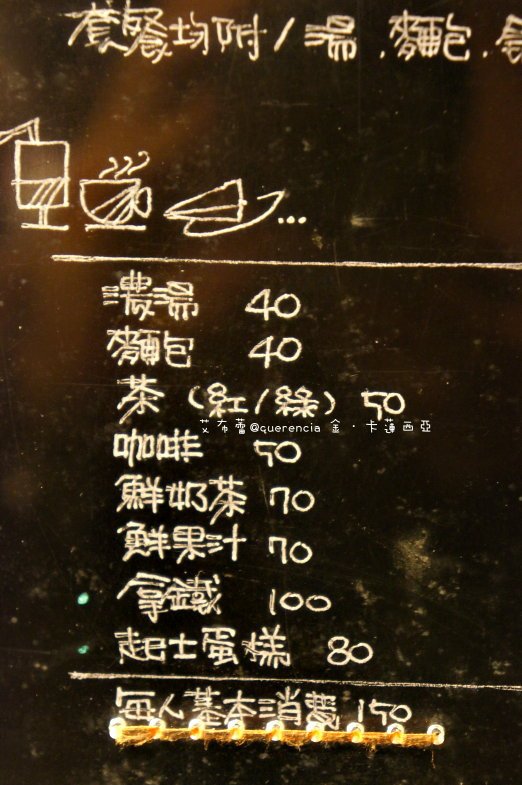 套餐均附/湯.麵包.
...
濃湯 40
麵包 40
茶 (紅/綠) 50
艾布蕾@querencia 金‧卡蓮西亞
咖啡 50
鮮奶茶 70
鮮果汁 70
拿鐵 100
起士蛋糕 80
每人基本消費 150